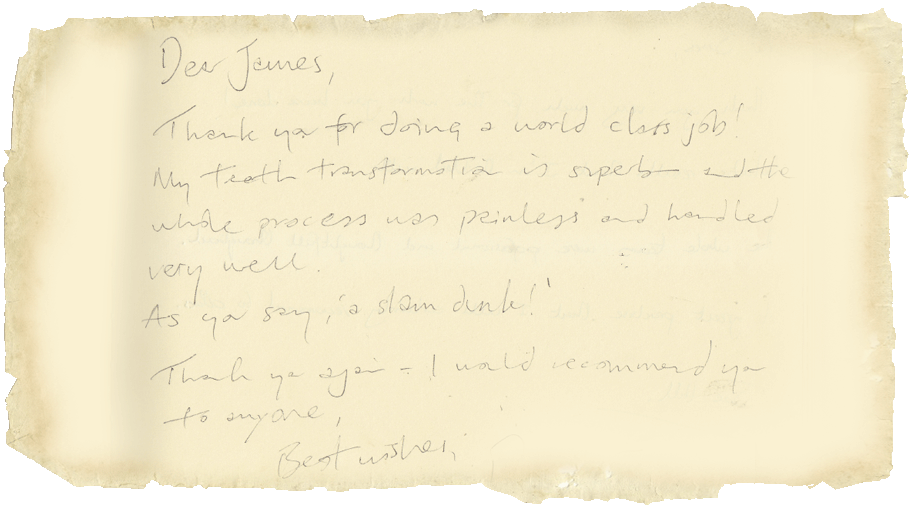 Dear James,
Thank you for doing a world class job!
My teeth transformation is superb and the
whole process was painless and handled
very well.
As you say, 'a slam dunk!'
Thank you again - I would recommend you
to anyone,
Best wishes,